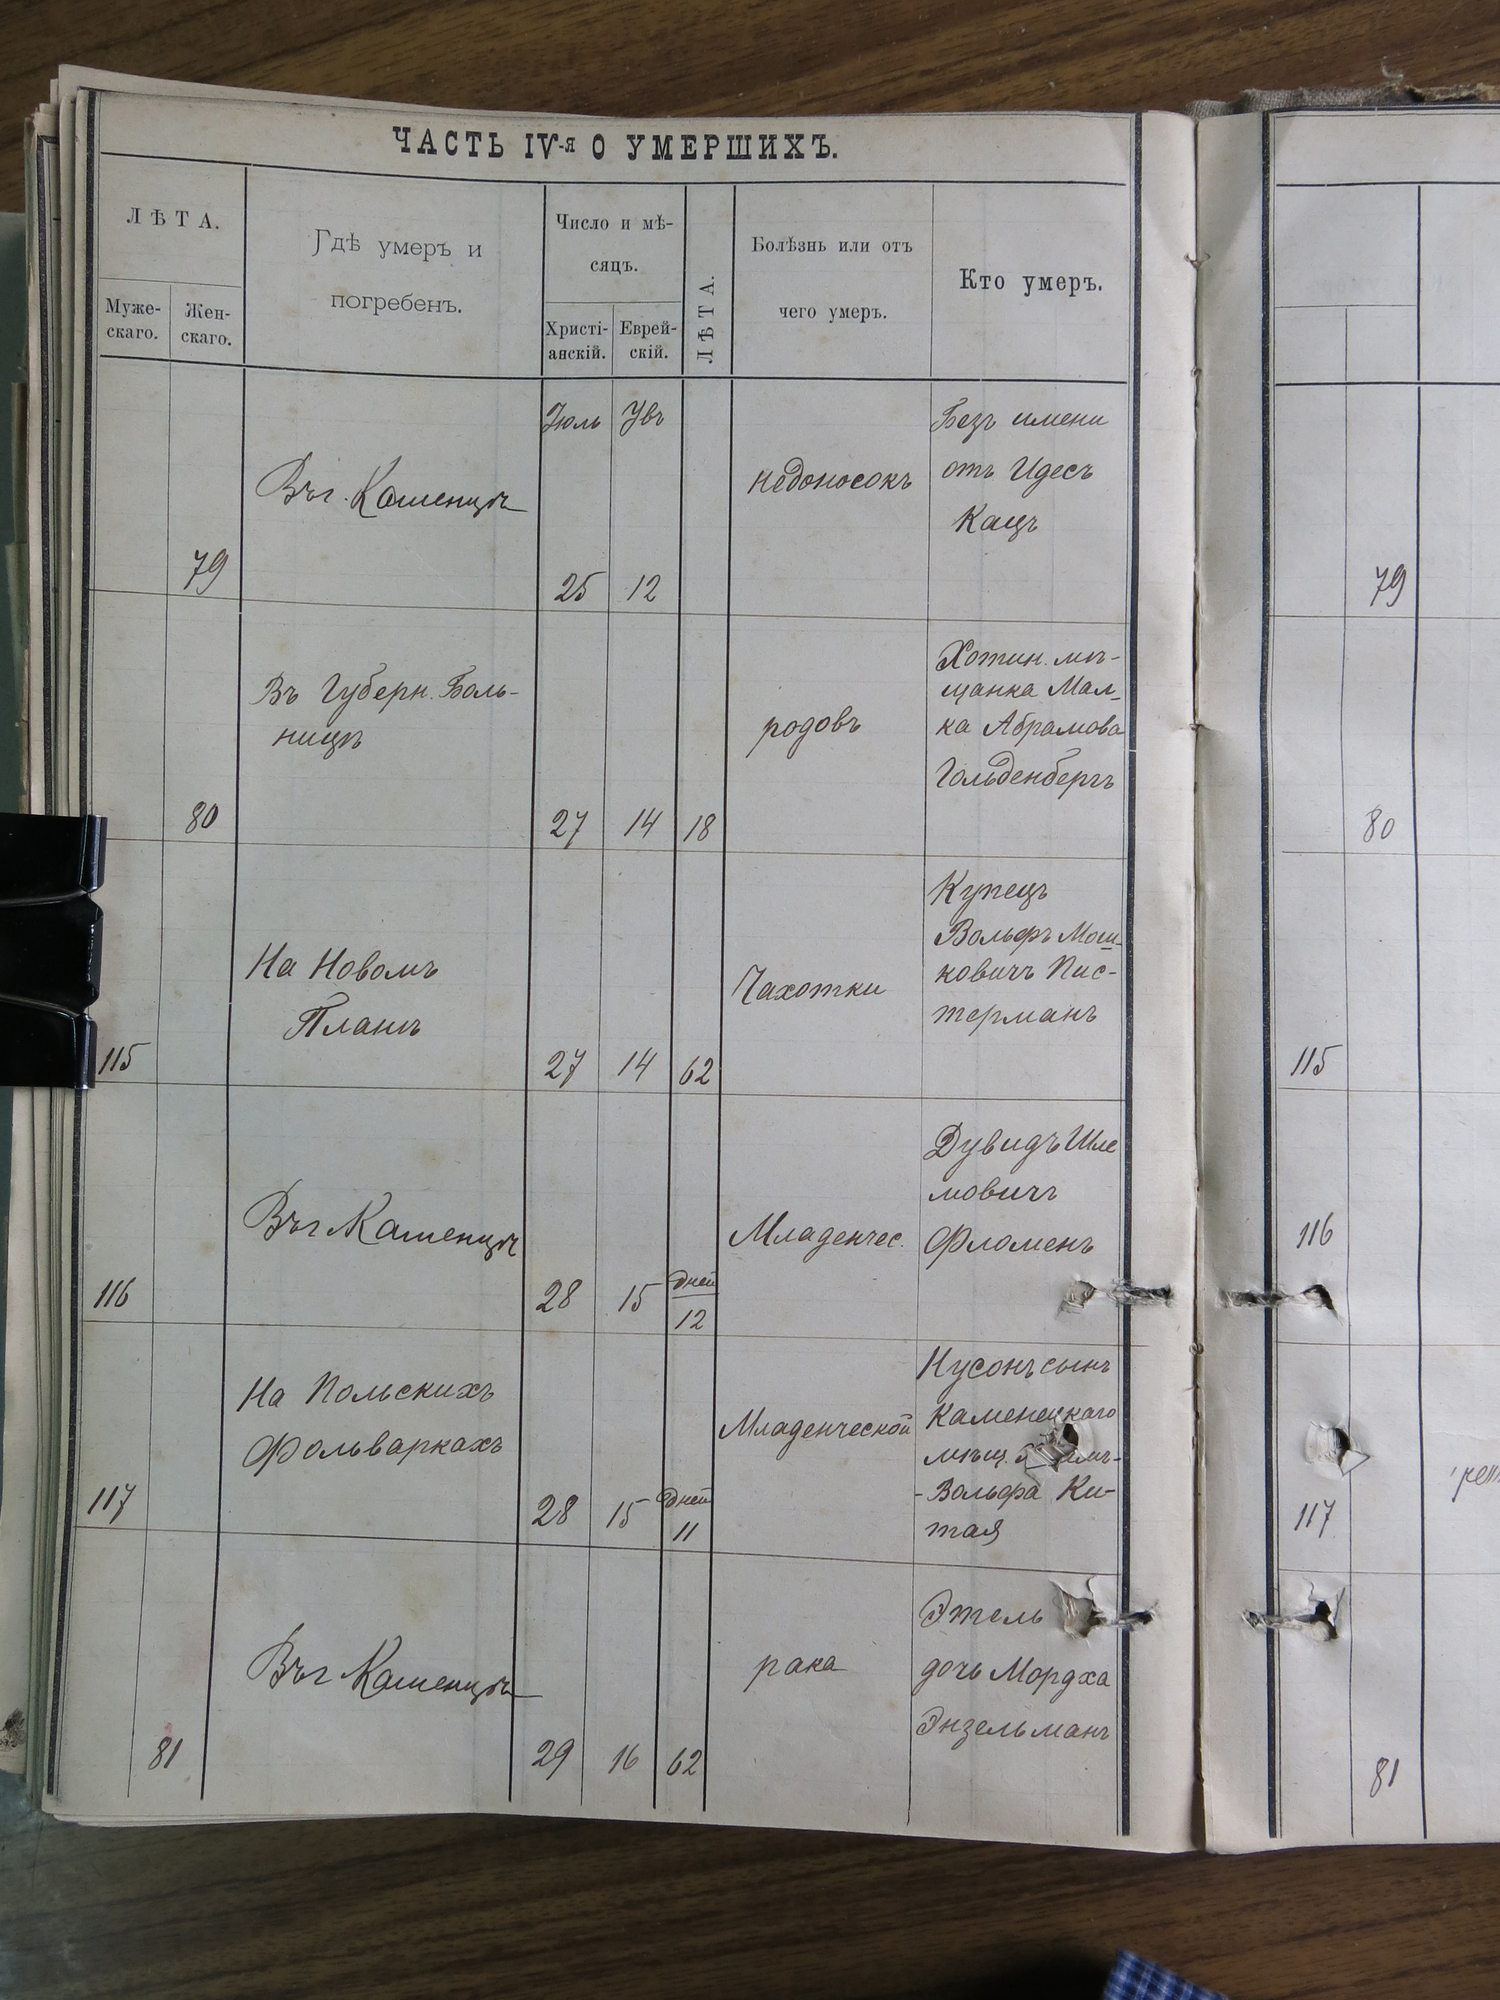 ЧАСТЬ IV-я О УМЕРШИХЪ.
ЛѢТА.
Муже-
скаго.
Жен-
скаго.
Гдѣ умеръ и
погребенъ.
Число и мѣ-
сяцъ.
Христі-
анскій.
Еврей-
скій.
ЛѢТА.
Болѣзнь или отъ
чего умеръ.
Кто умеръ.
79
Въ г. Каменцѣ
Іюль
25
Увъ
12
недоносокъ
Безъ имени
отъ Идесъ
Кацъ
79
80
Въ Губерн. Боль-
ницѣ
27
14
18
родовъ
Хотин. мѣ-
щанка Мал-
ка Абрамова
Гольденбергъ
80
115
На Новомъ
Планѣ
27
14
62
Чахотки
Купецъ
Вольфъ Мош-
ковичъ Пис-
терманъ
115
116
Въ г Каменцѣ
28
15
дней
12
Младенчес.
Дувидъ Шле
мовичъ
Фломенъ
116
117
На Польскихъ
Фольваркахъ
28
15
дней
11
Младенческой
Нусонъ сынъ
Каменецкаго
мѣщ.
-Вольфа Ки-
тая
117
81
Въ г Каменцѣ
29
16
62
рака
Этель
дочь Мордха
Энзельманъ
81